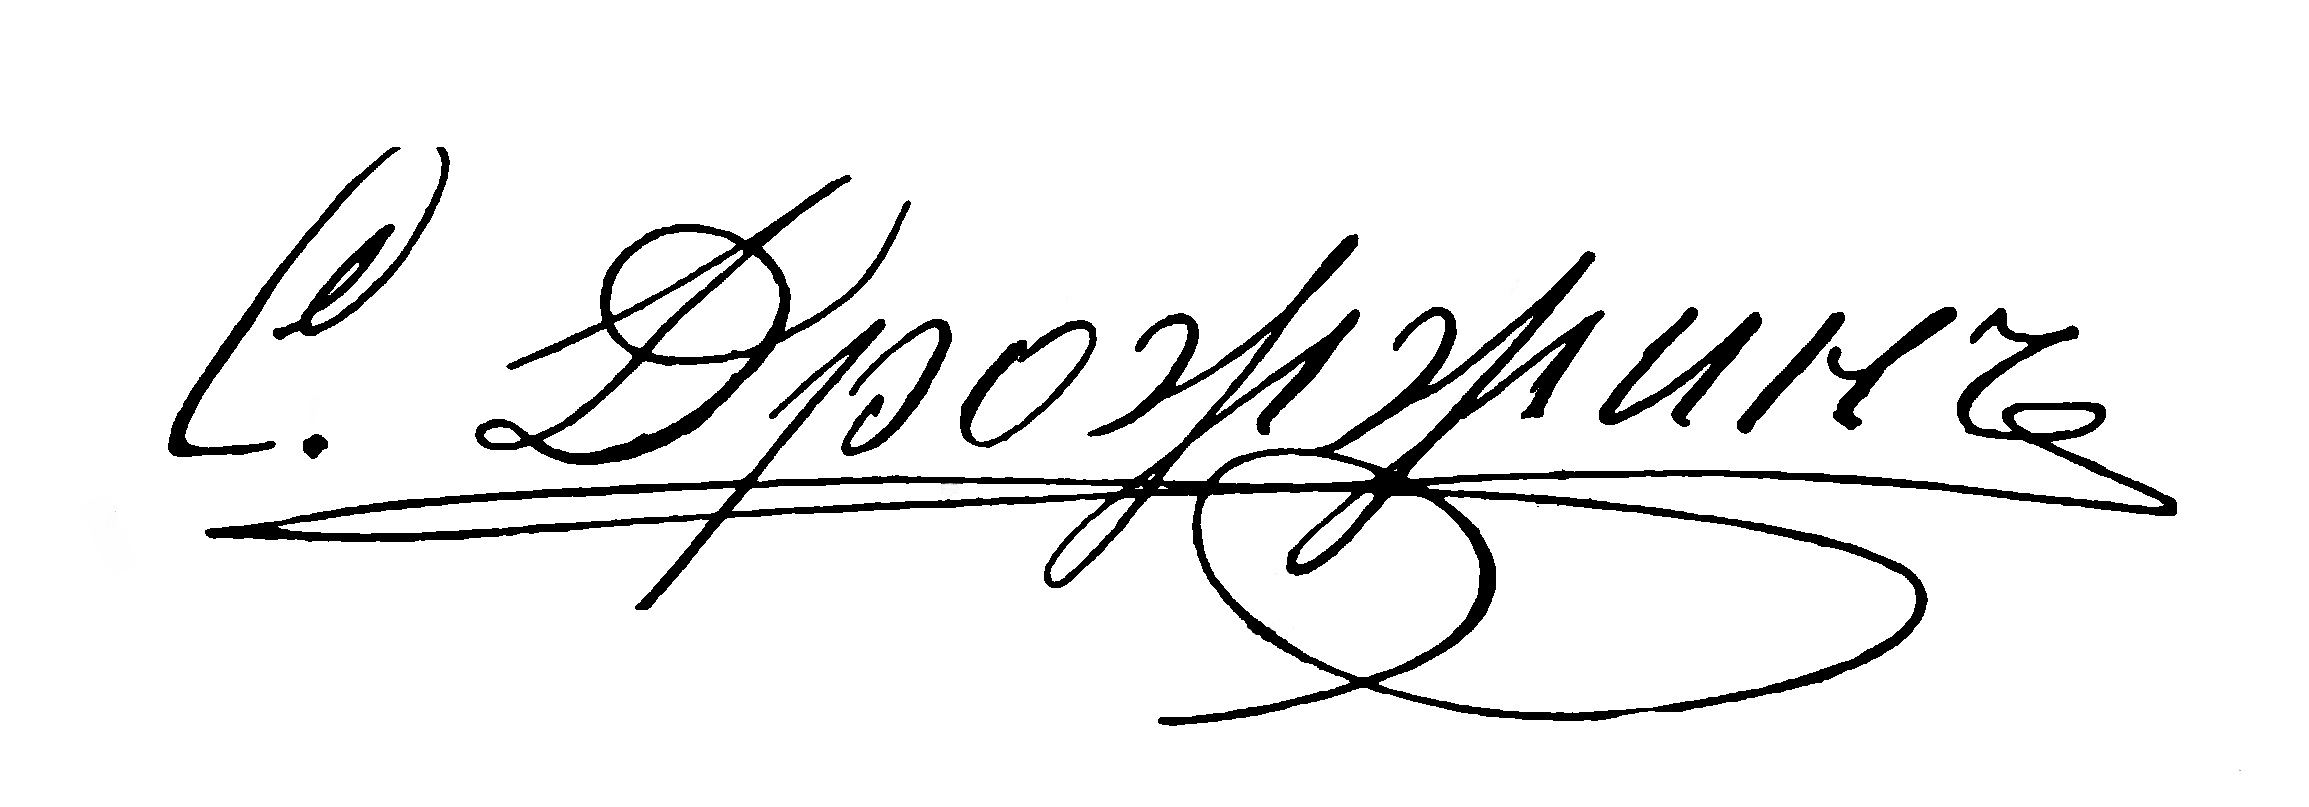 С. Дрожжинъ